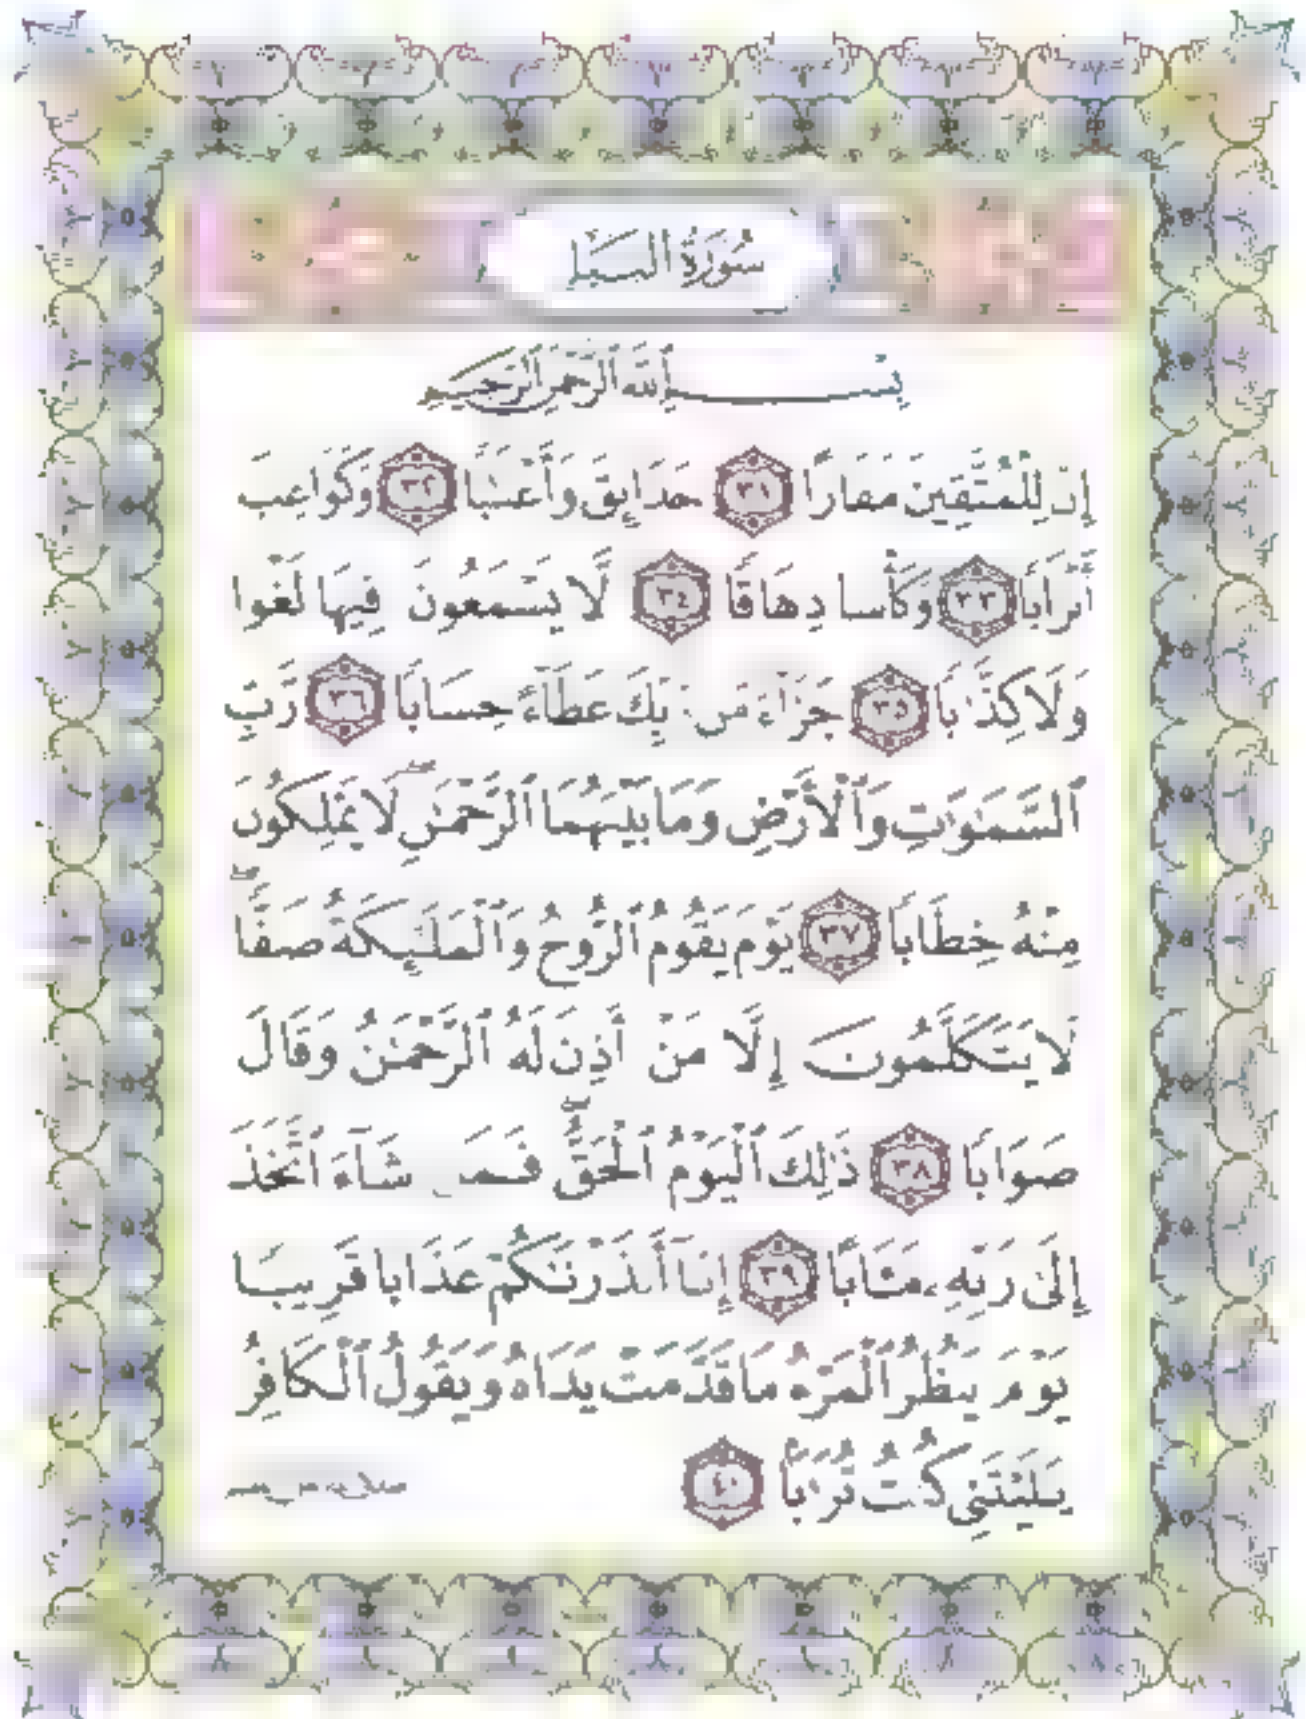 سُورَةُ النَّبَإِ
بِسْمِ ٱللَّهِ ٱلرَّحْمَٰنِ ٱلرَّحِيمِ
إِنَّ لِلْمُتَّقِينَ مَفَازًا ٣١ حَدَآئِقَ وَأَعْنَٰبًا ٣٢ وَكَوَاعِبَ
أَتْرَابًا ٣٣ وَكَأْسًا دِهَاقًا ٣٤ لَّا يَسْمَعُونَ فِيهَا لَغْوًا
وَلَا كِذَّٰبًا ٣٥ جَزَآءً مِّن رَّبِّكَ عَطَآءً حِسَابًا ٣٦ رَّبِّ
ٱلسَّمَٰوَٰتِ وَٱلْأَرْضِ وَمَا بَيْنَهُمَا ٱلرَّحْمَٰنِ ۖ لَا يَمْلِكُونَ
مِنْهُ خِطَابًا ٣٧ يَوْمَ يَقُومُ ٱلرُّوحُ وَٱلْمَلَٰٓئِكَةُ صَفًّا ۖ
لَّا يَتَكَلَّمُونَ إِلَّا مَنْ أَذِنَ لَهُ ٱلرَّحْمَٰنُ وَقَالَ
صَوَابًا ٣٨ ذَٰلِكَ ٱلْيَوْمُ ٱلْحَقُّ ۖ فَمَن شَآءَ ٱتَّخَذَ
إِلَىٰ رَبِّهِۦ مَـَٔابًا ٣٩ إِنَّآ أَنذَرْنَٰكُمْ عَذَابًا قَرِيبًا
يَوْمَ يَنظُرُ ٱلْمَرْءُ مَا قَدَّمَتْ يَدَاهُ وَيَقُولُ ٱلْكَافِرُ
يَٰلَيْتَنِى كُنتُ تُرَٰبًۢا ٤٠